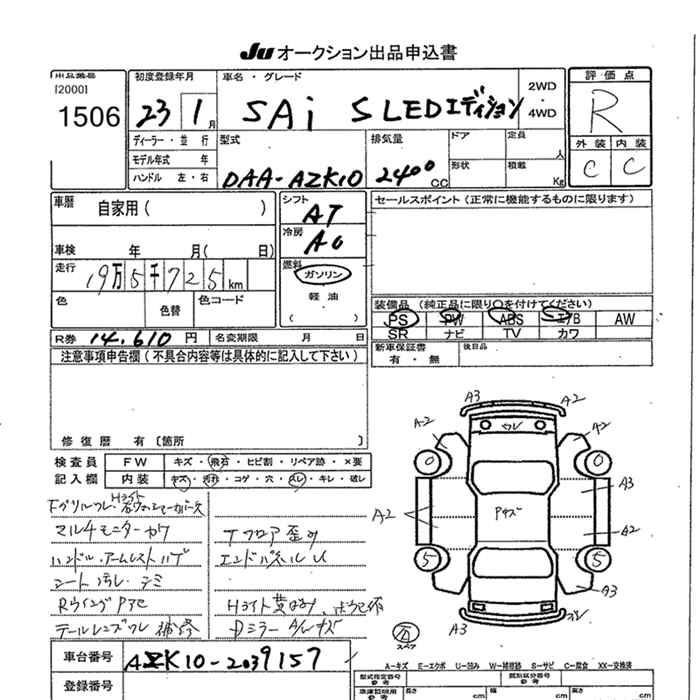 Ju オークション出品申込書
出品番号
[2000]
1506
初度登録年月
23 1月
車名・グレード
SAi S LEDエディション
2WD
・
4WD
評価点
R
外装 内装
C C
ディーラー・並行
モデル年式 年
ハンドル 左・右
型式
DAA-AZK10
排気量
2400cc
ドア
形状
定員
人
積載
Kg
車歴
自家用( )
車検 年 月( 日)
走行
19万5千725km
色
色替
色コード
シフト
AT
冷房
AC
燃料
ガソリン
軽油
( )
セールスポイント(正常に機能するものに限ります)
装備品(純正品に限り○を付けてください)
PS PW ABS エアB AW
SR ナビ TV カワ
R券 14,610円
名変期限 月 日
新車保証書
有・無
後日品
注意事項申告欄(不具合内容等は具体的に記入して下さい)
修復歴 有〔箇所 〕
検査員
記入欄
FW キズ・飛石・ヒビ割・リペア跡・×要
内装 キズ・汚れ・コゲ・穴・スレ・キレ・破レ
マルチモニターカワ
ハンドル・アームレストハゲ
シート汚レ・シミ
テールレンズワレ 補修
Tフロア歪み
エンドパネルU
Dミラー A/Lキズ
A3 A2
A2 A2
ワレ
A3
A2
Pキズ
A2
5 5
A3
A3
スペア
A-キズ E-エクボ U-凹み W-補修跡 S-サビ C-腐食 XX-交換済
車台番号 AZK10-2039157
登録番号
型式指定番号
参考
類別区分番号
参考
車庫証明用
参考
長さ cm
幅 cm
高さ cm